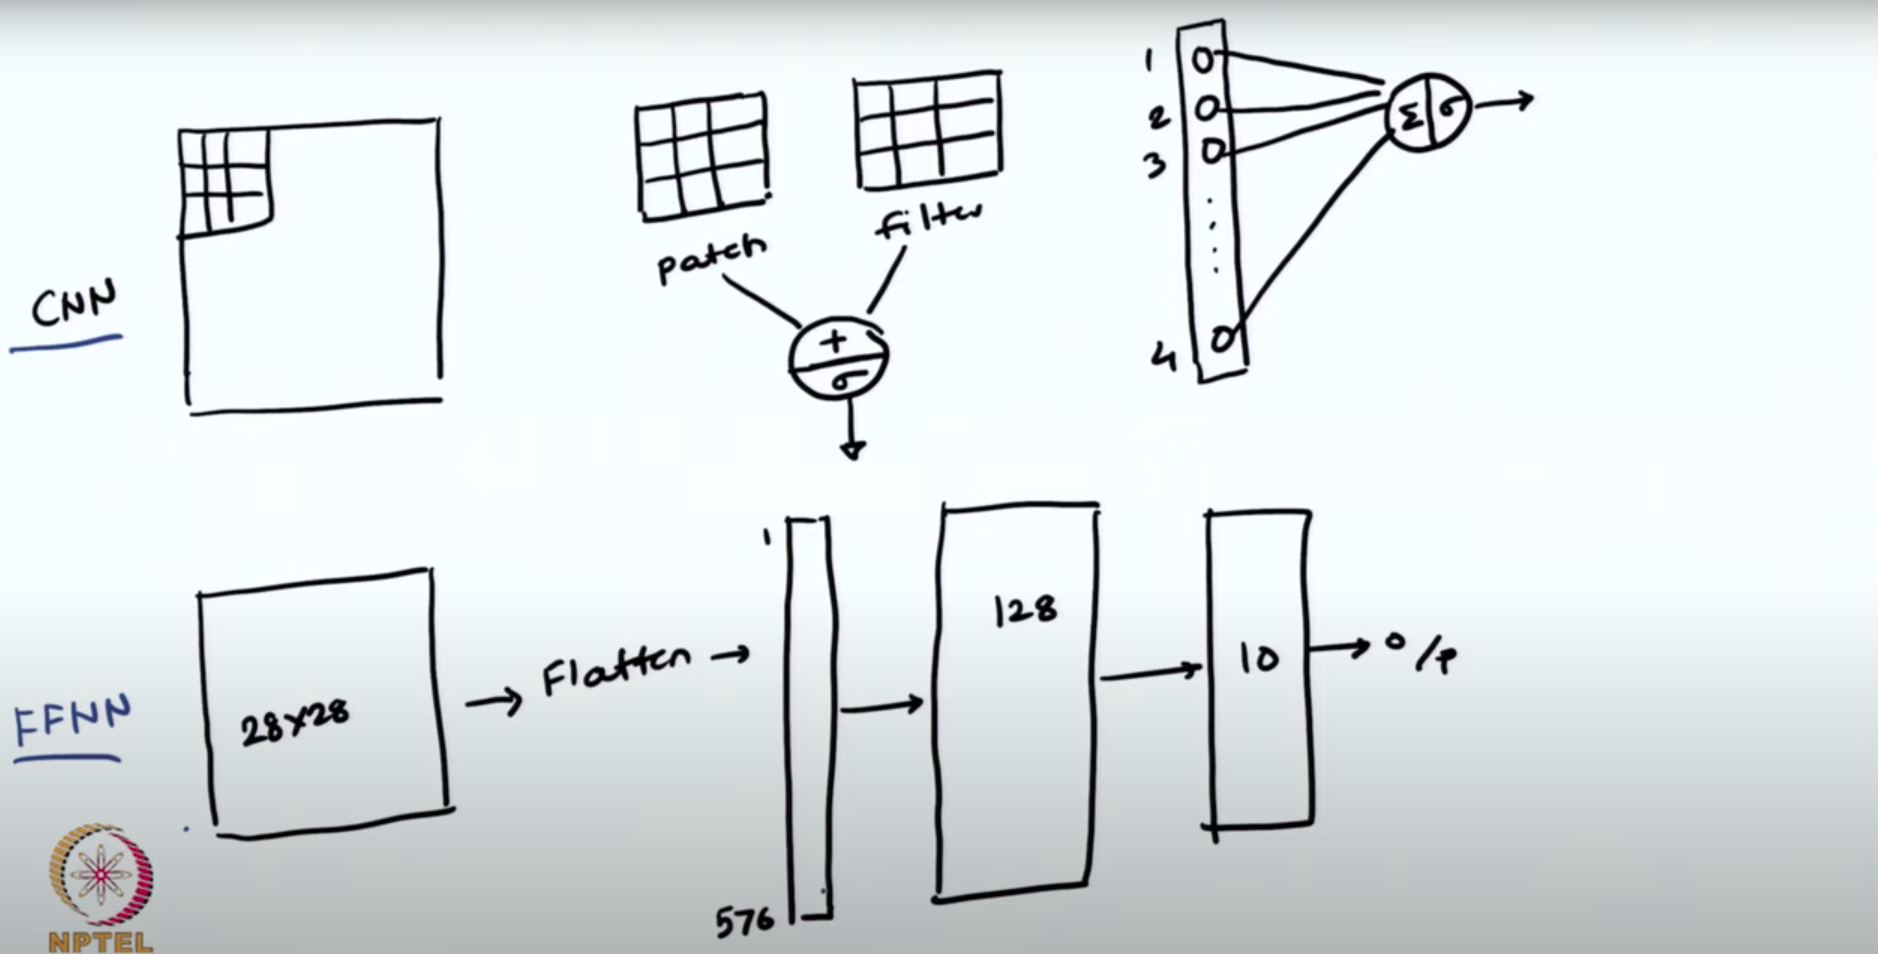 CNN
patch
filter
+
σ
1
2
3
4
Σ σ
FFNN
28x28
Flatten
1
576
128
10
o/p
NPTEL